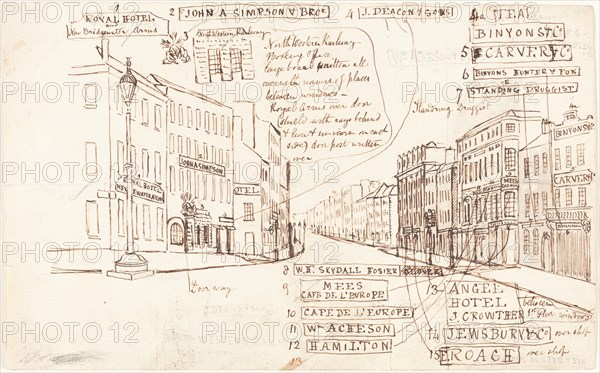 1
ROYAL HOTEL
and
New Bridgewater Arms
2 JOHN A SIMPSON & Bros
3
North Western Railway
North Western Railway
Booking Office
large board written all
over with names of places
between windows —
Royal Arms over door
Shield with rays behind
& lion & unicorn on each
side, door post written
over
4 J. DEACON & SONS
4a TEA
BINYONS & Co
5 CARVER & Co
6 BINYONS HUNTER & FOX
7 STANDING DRUGGIST
Standring Druggist
JOHN A SIMPSON
ROYAL HOTEL
HOTEL
MEES
4a
TEA
BINYONS &
CARVER &
Doorway
8 W. B. SKYDALL HOSIER GLOVER
9 MEES
CAFE DE L'EUROPE
10 CAFE DE L'EUROPE
11 Wm ACHESON
12 HAMILTON
13
13 ANGEL
HOTEL
J. CROWTHER
between
1st floor windows
14 JEWSBURY & Co over shop
15 ROACH over shop